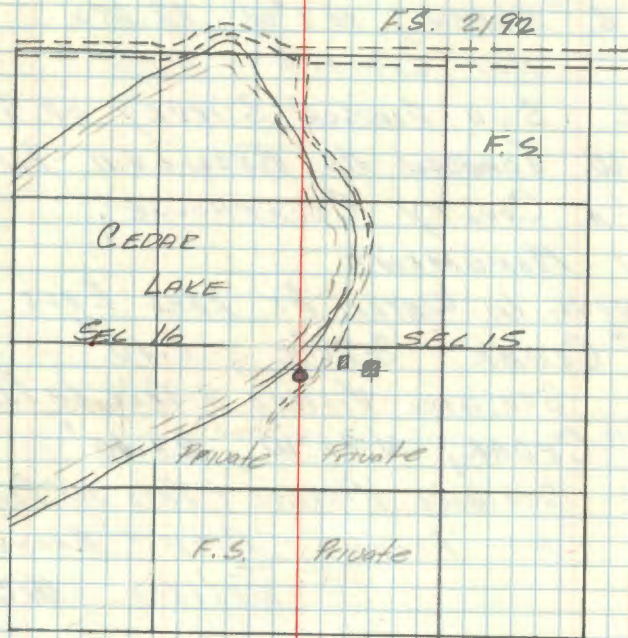 F.S. 2192
F.S.
CEDAR
LAKE
SEC 16
SEC 15
Private
Private
F.S.
Private